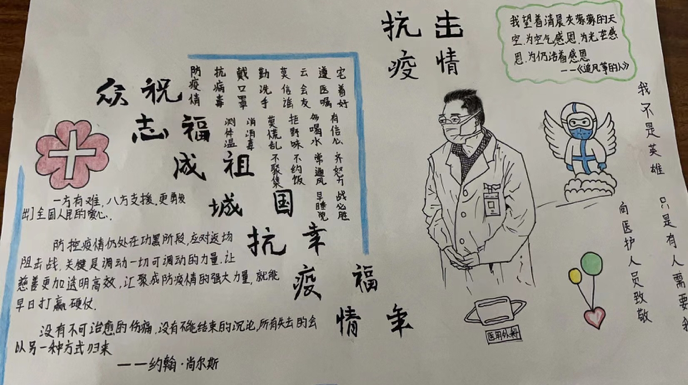 抗击
疫情
我望着清晨灰雾雾的天
空,为空气感恩,为光芒感
恩,为仍活着感恩
——《追风筝的人》
众志成城抗疫情
祝福祖国幸福年
防疫情
抗病毒
戴口罩
勤洗手
莫信谣
云会友
遵医嘱
宅着好
测体温
消消毒
莫慌乱
拒野味
喝水
有信心
不聚集
不约饭
常通风
齐努力
早睡觉
战必胜
一方有难,八方支援,更
出了全国人民的爱心.
防控疫情仍处在功黑阶段,应对这场
阻击战,关键是调动一切可调动的力量.让
慈善更加透明高效,汇聚成防疫情的强大力量,就能
早日打赢硬仗.
没有不可治愈的伤痛,没有不能结束的沉沦,所有失去的会
以另一种方式归来
——约翰·肖尔斯
我不是英雄 只是有人需要我
向医护人员致敬
医用外科